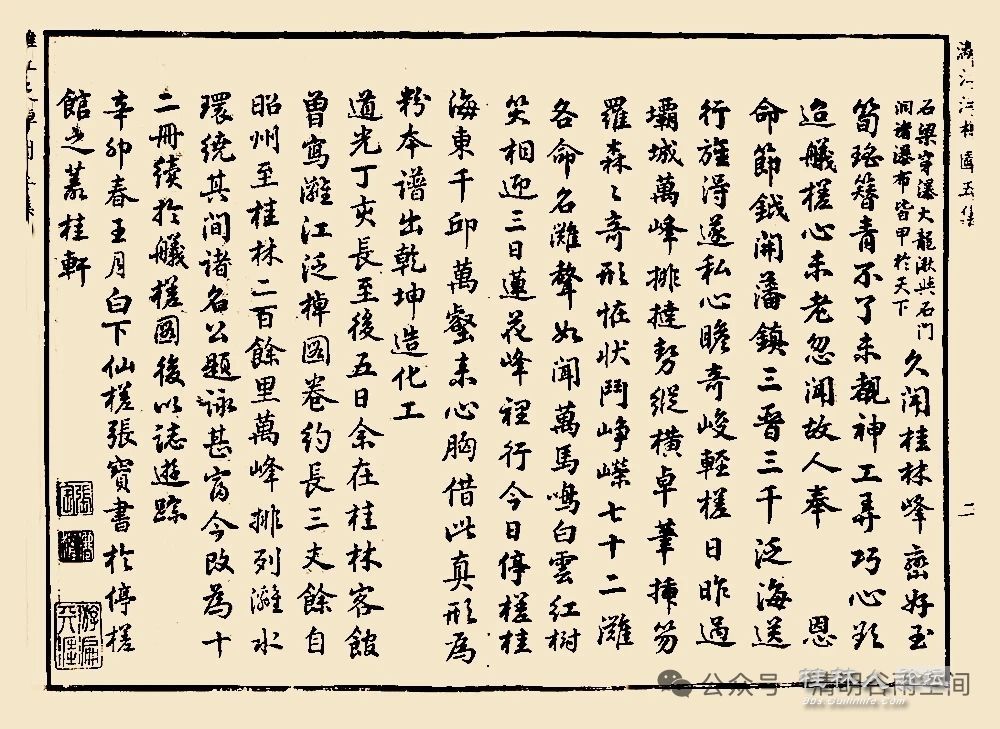 漓江泛棹圖五集
二
石梁穿瀑大龍湫與石门
洞諸瀑布皆甲於天下
久闻桂林峰巒好玉
筍瑤簪青不了未覩神工弄巧心
迨艤槎心未老忽闻故人奉 恩
命節鉞開藩鎮三晋三千泛海送
行旌得遂私心瞻奇峻輕槎日昨過
壩城萬峰排撻势縱横卓筆搢笏
羅森々奇形恠狀鬥峥嶸七十二灘
各命名灘聲如闻萬馬鳴白雲红樹
笑相迎三日蓮花峰裡行今日停槎桂
海東千邱萬壑来心胸借此真形為
粉本譜出乾坤造化工
道光丁亥長至後五日余在桂林客館
曾寫灕江泛棹圖卷约長三丈餘自
昭州至桂林二百餘里萬峰排列灕水
環繞其间諸名公題詠甚富今改為十
二冊續於艤槎圖後以誌遊踪
辛卯春王月白下仙槎張寶書於停槎
館之叢桂軒
公众号 · 清明谷雨空间
桂林人论坛
bbs.guilinlife.com